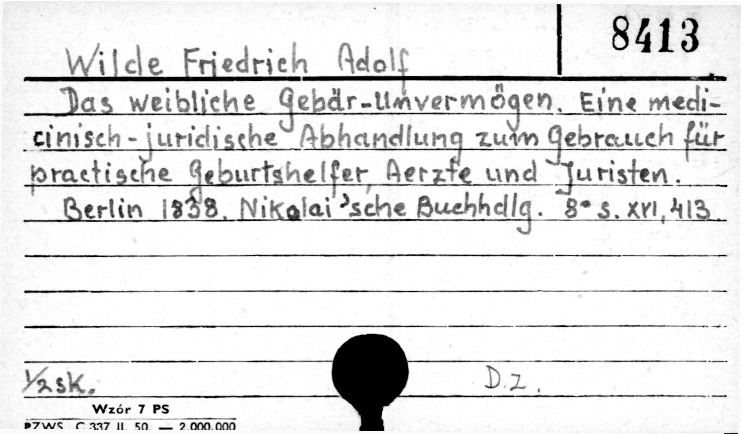 8413
Wilde Friedrich Adolf
Das weibliche Gebär-Unvermögen. Eine medi-
cinisch-juridische Abhandlung zum Gebrauch für
practische Geburtshelfer, Aerzte und Juristen.
Berlin 1838. Nikolai'sche Buchhdlg. 8° s. XVI, 413.
1/2 sk.
D.z.
Wzór 7 PS
PZWS. C 337 II. 50. — 2.000.000